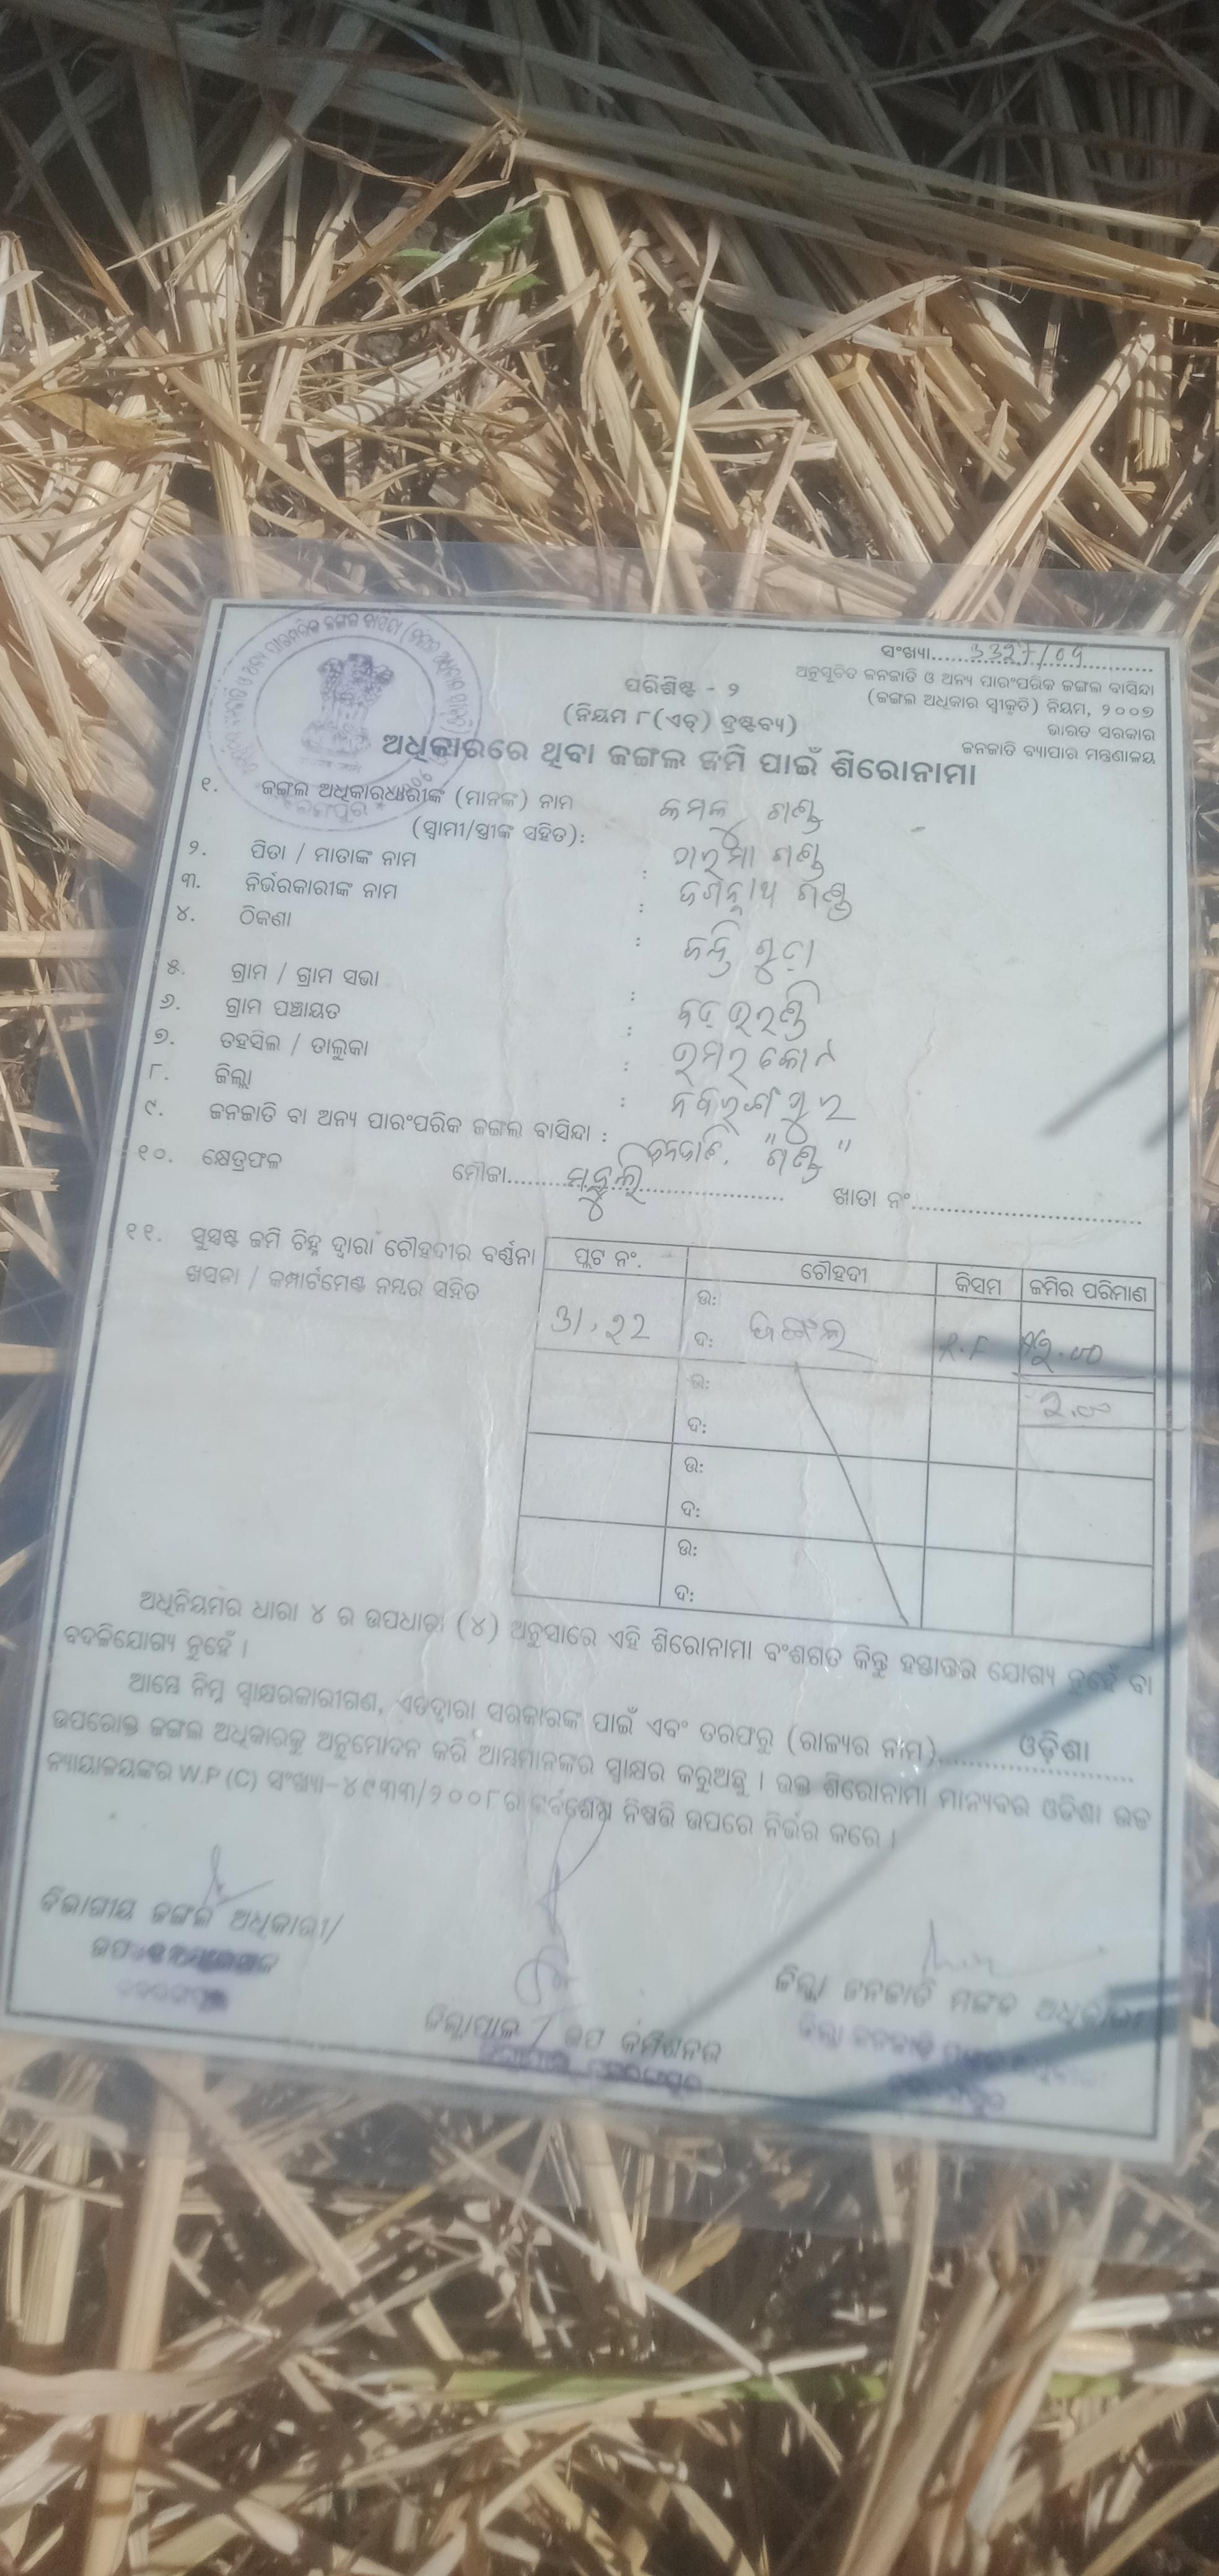 ସଂଖ୍ୟା..........3327/09..........
ଅନୁସୂଚିତ ଜନଜାତି ଓ ଅନ୍ୟ ପାରଂପରିକ ଜଙ୍ଗଲ ବାସିନ୍ଦା
(ଜଙ୍ଗଲ ଅଧିକାର ସ୍ୱୀକୃତି) ନିୟମ, ୨୦୦୭
ଭାରତ ସରକାର
ଜନଜାତି ବ୍ୟାପାର ମନ୍ତ୍ରଣାଳୟ
ପରିଶିଷ୍ଟ - ୨
(ନିୟମ ୮(ଏଚ୍) ଦ୍ରଷ୍ଟବ୍ୟ)
ଅଧିକାରରେ ଥିବା ଜଙ୍ଗଲ ଜମି ପାଇଁ ଶିରୋନାମା
୧. ଜଙ୍ଗଲ ଅଧିକାରଧାରୀଙ୍କ (ମାନଙ୍କ) ନାମ
(ସ୍ୱାମୀ/ସ୍ତ୍ରୀଙ୍କ ସହିତ): କମଳୁ ଗଣ୍ଡ
୨. ପିତା / ମାତାଙ୍କ ନାମ : ଗଣ୍ଡ
୩. ନିର୍ଭରକାରୀଙ୍କ ନାମ : ଜଗନ୍ନାଥ ଗଣ୍ଡ
୪. ଠିକଣା : ଗୁଡ଼ା
୫. ଗ୍ରାମ / ଗ୍ରାମ ସଭା :
୬. ଗ୍ରାମ ପଞ୍ଚାୟତ :
୭. ତହସିଲ / ତାଲୁକା : ଉମରକୋଟ
୮. ଜିଲ୍ଲା : ନବରଙ୍ଗପୁର
୯. ଜନଜାତି ବା ଅନ୍ୟ ପାରଂପରିକ ଜଙ୍ଗଲ ବାସିନ୍ଦା : ଜନଜାତି, "ଗଣ୍ଡ"
୧୦. କ୍ଷେତ୍ରଫଳ ମୌଜା.................... ଖାତା ନଂ....................
୧୧. ସୁସ୍ପଷ୍ଟ ଜମି ଚିହ୍ନ ଦ୍ୱାରା ଚୌହଦୀର ବର୍ଣ୍ଣନା
ଖସଡା / କମ୍ପାର୍ଟମେଣ୍ଟ ନମ୍ବର ସହିତ
ପ୍ଲଟ ନଂ. ଚୌହଦୀ କିସମ ଜମିର ପରିମାଣ
ଉ:
ଦ: ଜଙ୍ଗଲ R.F
ଉ:
ଦ:
ଉ:
ଦ:
ଉ:
ଦ:
ଅଧିନିୟମର ଧାରା ୪ ର ଉପଧାରା (୪) ଅନୁସାରେ ଏହି ଶିରୋନାମା ବଂଶଗତ କିନ୍ତୁ ହସ୍ତାନ୍ତର ଯୋଗ୍ୟ ନୁହେଁ ବା
ବଦଳିଯୋଗ୍ୟ ନୁହେଁ ।
ଆମ୍ଭେ ନିମ୍ନ ସ୍ୱାକ୍ଷରକାରୀଗଣ, ଏତଦ୍ୱାରା ସରକାରଙ୍କ ପାଇଁ ଏବଂ ତରଫରୁ (ରାଜ୍ୟର ନାମ)..........ଓଡ଼ିଶା..........
ଉପରୋକ୍ତ ଜଙ୍ଗଲ ଅଧିକାରକୁ ଅନୁମୋଦନ କରି ଆମ୍ଭମାନଙ୍କର ସ୍ୱାକ୍ଷର କରୁଅଛୁ । ଉକ୍ତ ଶିରୋନାମା ମାନ୍ୟବର ଓଡିଶା ଉଚ୍ଚ
ନ୍ୟାୟାଳୟଙ୍କର W.P (C) ସଂଖ୍ୟା-୪୯୩୩/୨୦୦୮ର ସର୍ବଶେଷ ନିଷ୍ପତ୍ତି ଉପରେ ନିର୍ଭର କରେ ।
ବିଭାଗୀୟ ଜଙ୍ଗଲ ଅଧିକାରୀ/
ଜିଲ୍ଲାପାଳ / ଉପ କମିଶନର
ଜିଲ୍ଲା ଜନଜାତି ମଙ୍ଗଳ ଅଧିକାରୀ